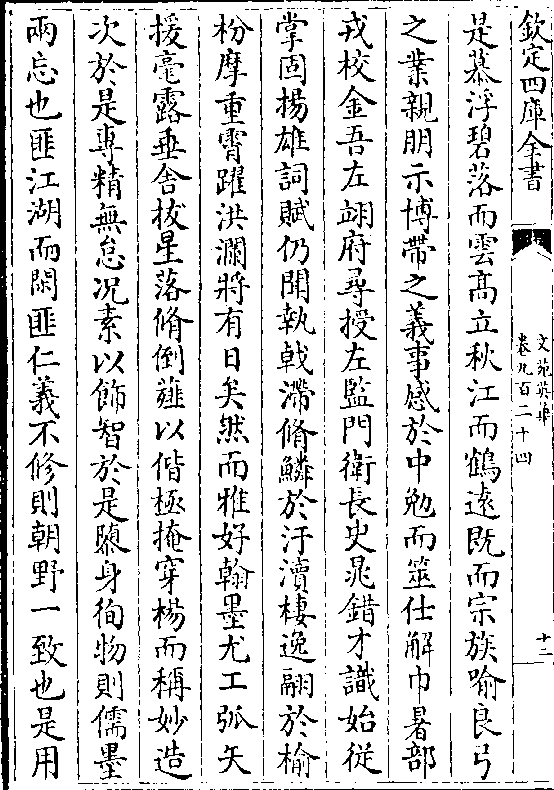 欽定四庫全書
文苑英華
卷九百二十四
十二
是慕浮碧落而雲高立秋江而鶴遠既而宗族喻良弓
之業親朋示博帶之義事感於中勉而筮仕解巾署部
戎校金吾左翊府尋授左監門衛長史晁錯才識始從
掌固揚雄詞賦仍聞執戟滯脩鱗於汙瀆棲逸翮於榆
枌摩重霄躍洪瀾將有日矣然而雅好翰墨尤工弧矢
援毫露垂舍拔星落脩倒薤以偕極掩穿楊而稱妙造
次於是專精無怠况素以飾智於是隳身徇物則儒墨
兩忘也匪江湖而閑匪仁義不修則朝野一致也是用